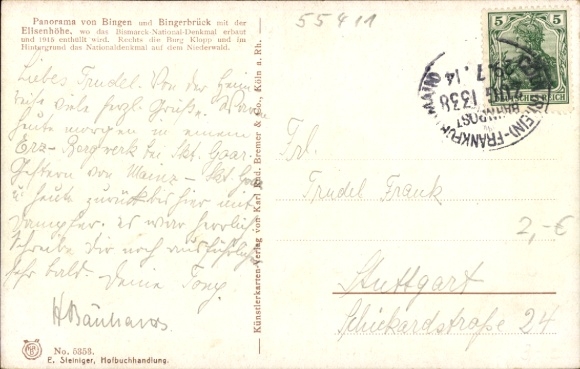 Panorama von Bingen und Bingerbrück mit der
Elisenhöhe, wo das Bismarck-National-Denkmal erbaut
und 1915 enthüllt wird. Rechts die Burg Klopp und im
Hintergrund das Nationaldenkmal auf dem Niederwald.
55411
5
5
DEUTSCHES REICH
(RHEIN)-FRANKFURT (MAIN)
BAHNPOST
ZUG 1338
29.7.14
Liebes Trudel. Von der Heim
reise viele herzl. Grüße. War
heute morgen in einem
Erz-Bergwerk bei Skt. Goar.
Gestern von Mainz - Skt. Goar
u. heute zurück bis hier mit
Dampfer. es war herrlich
Schreibe dir noch ausführlich
sehr bald. Deine Tony.
H Bäuhaus
Künstlerkarten-Verlag von Karl Rud. Bremer & Co., Köln a. Rh.
Frl.
Trudel Frank
2,-€
Stuttgart
Schickardstraße 24
No. 5353.
E. Steiniger, Hofbuchhandlung.